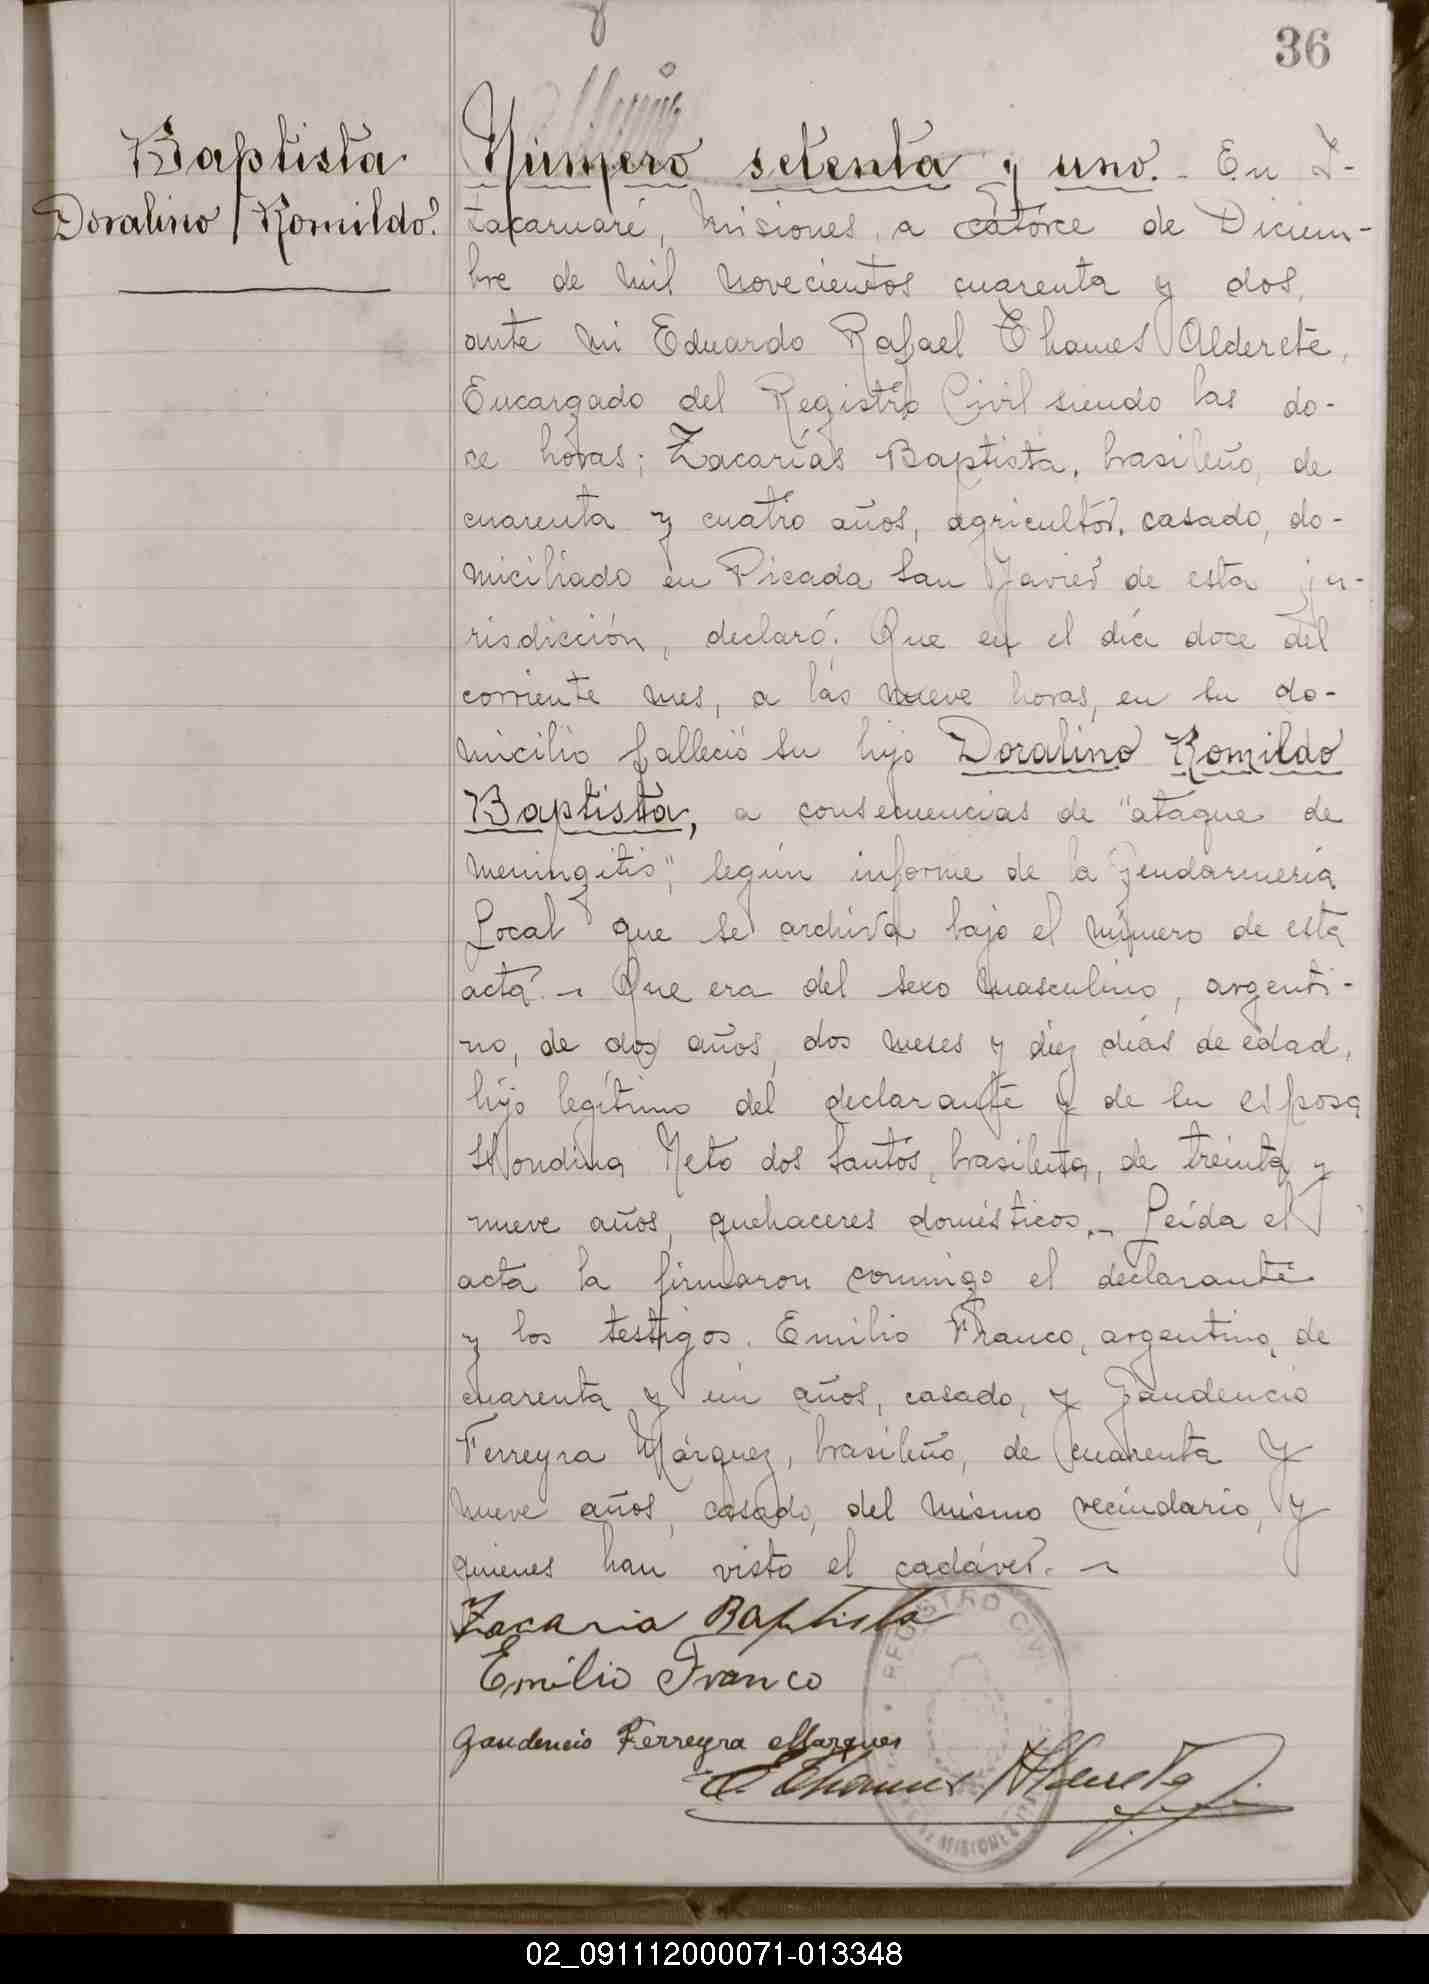 36
Baptista
Doralino Romildo.
Número setenta y uno. - En I-
tacaruaré, Misiones, a catorce de Diciem-
bre de mil novecientos cuarenta y dos,
ante mi Eduardo Rafael Thames Alderete,
Encargado del Registro Civil siendo las do-
ce horas; Zacarías Baptista, brasileño, de
cuarenta y cuatro años, agricultor, casado, do-
miciliado en Picada San Javier de esta ju-
risdicción, declaró: Que en el día doce del
corriente mes, a las nueve horas, en su do-
micilio falleció su hijo Doralino Romildo
Baptista, a consecuencias de "ataque de
meningitis", según informe de la Gendarmería
Local que se archiva bajo el número de esta
acta. - Que era del sexo masculino, argenti-
no, de dos años, dos meses y diez días de edad,
hijo legítimo del declarante y de su esposa
Neto dos Santos, brasileña, de treinta y
nueve años, quehaceres domésticos. - Leída el
acta la firmaron conmigo el declarante
y los testigos. Emilio Franco, argentino, de
cuarenta y un años, casado, y Gaudencio
Ferreyra Márquez, brasileño, de cuarenta y
nueve años, casado, del mismo vecindario, y
quienes han visto el cadáver. -
Zacaria Baptista
Emilio Franco
Gaudencio Ferreyra Marques
E Thames Alderete
REGISTRO CIVIL
MISIONES
02_091112000071-013348